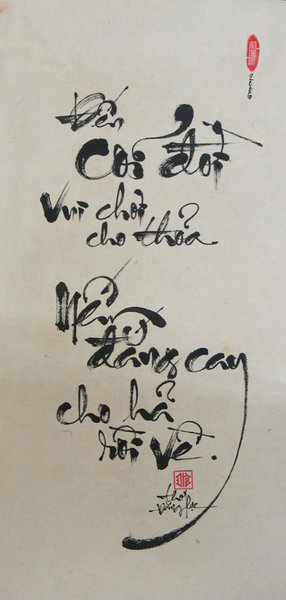 Đến
Cõi đời
Vui chơi
cho thỏa
Nếm
đắng cay
cho hả
rồi về.